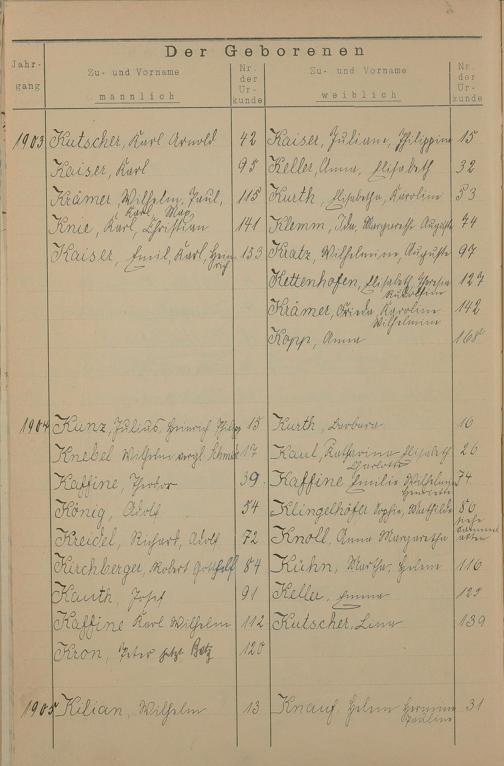 Der Geborenen
Jahr-
gang
Zu- und Vorname
männlich
Nr.
der
Ur-
kunde
Zu- und Vorname
weiblich
Nr.
der
Ur-
kunde
1903 Kutscher, Karl Arnold 42 Kaiser, Juliane, Philippine 15
Kaiser, Karl 95 Keller, Anna, Elisabeth 32
Krämer, Wilhelm, Paul, 115 Kurth, Elisabetha, Karoline 53
Karl, Max
Knie, Karl, Christian 141 Klemm, Ida, Margarethe Auguste 74
Kaiser, Emil, Karl, Hein- 153 Kratz, Wilhelmine, Auguste 97
rich
Kettenhofen, Elisabeth Theresia 127
Rudolfine
Krämer, Frieda, Karoline 142
Wilhelmine
Kopp, Anna 168
1904 Kunz, Julius, Heinrich Philipp 15 Kurth, Barbara 16
Knebel Wilhelm vergl. 17 Kaul, Katharina Elisabeth 26
Charlotte
Kaffine, Theodor 39 Kaffine Emilie Wilhelmine 74
Henriette
König, Adolf 54 Klingelhöfer Sophie, Mathilde 80
siehe
Kreidel, Richard, Adolf 72 Knoll, Anna Margaretha
akten
Kirchberger, Robert Gotthelf 84 Kühn, Martha, Helene 116
Kauth, Josef 91 Keller, Emma 122
Kaffine Karl Wilhelm 112 Kutscher, Lina 139
Kron, Peter jetzt Betz 120
1905 Kilian, Wilhelm 13 Knauf, Helene Hermine 31
Pauline